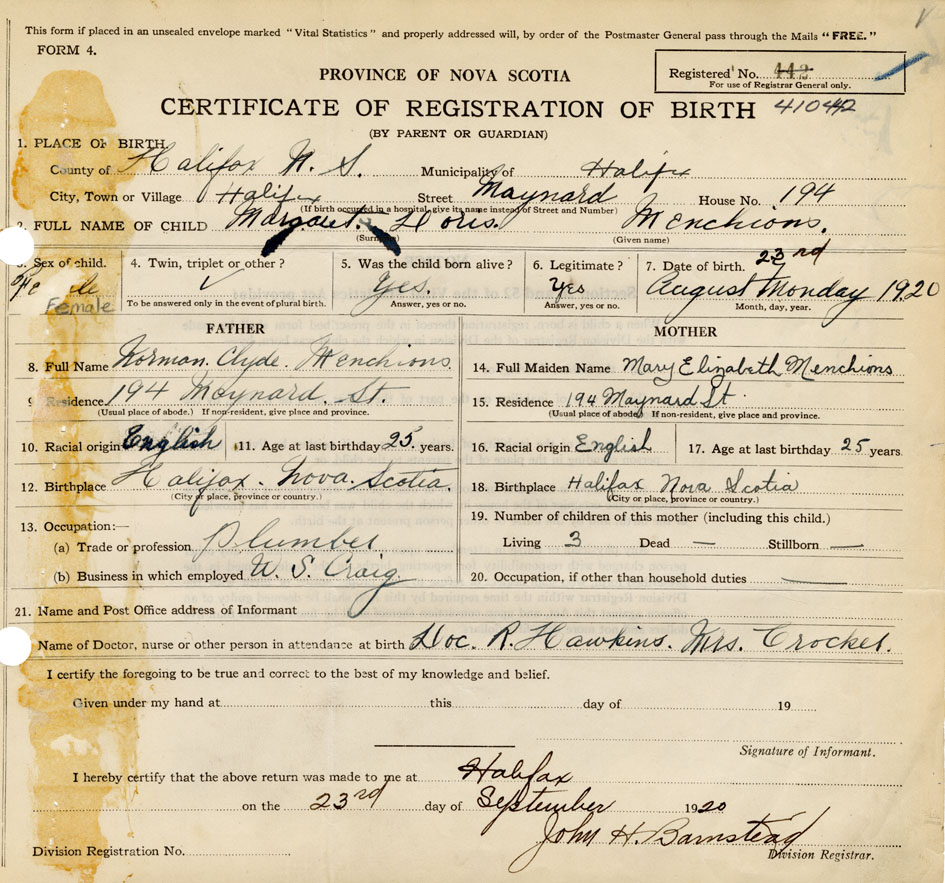 This form if placed in an unsealed envelope marked "Vital Statistics" and properly addressed will, by order of the Postmaster General pass through the Mails "FREE."
FORM 4.
Registered No. 442
For use of Registrar General only.
PROVINCE OF NOVA SCOTIA
CERTIFICATE OF REGISTRATION OF BIRTH 410442
(BY PARENT OR GUARDIAN)
1. PLACE OF BIRTH
County of Halifax N. S. Municipality of Halifx
City, Town or Village Halifx Street Maynard House No. 194
(If birth occured in a hospital, give its name instead of Street and Number)
2. FULL NAME OF CHILD Margaret. Doris. Menchions.
(Surname) (Given name)
3. Sex of child. 4. Twin, triplet or other? 5. Was the child born alive? 6. Legitimate? 7. Date of birth. 23rd
Female Yes. Yes August Monday 1920
Female To be answered only in the event of plural birth. Answer, yes or no. Answer, yes or no. Month, day, year.
FATHER
8. Full Name Norman. Clyde. Menchions.
9. Residence. 194 Maynard. St.
(Usual place of abode.) If non-resident, give place and province.
10. Racial origin English 11. Age at last birthday 25. years.
12. Birthplace Halifax. Nova. Scotia.
(City or place, province or country.)
13. Occupation:—
(a) Trade or profession Plumber
(b) Business in which employed W. S. Craig
MOTHER
14. Full Maiden Name Mary Elizabeth Menchions
15. Residence 194 Maynard St.
(Usual place of abode) If non-resident, give place and province.
16. Racial origin English 17. Age at last birthday 25 years.
18. Birthplace Halifax Nova Scotia
(City or place, province or country.)
19. Number of children of this mother (including this child.)
Living 3 Dead — Stillborn —
20. Occupation, if other than household duties —
21. Name and Post Office address of Informant
Name of Doctor, nurse or other person in attendance at birth Doc. R. Hawkins. Mrs. Crocket.
I certify the foregoing to be true and correct to the best of my knowledge and belief.
Given under my hand at this day of 19
Signature of Informant.
I hereby certify that the above return was made to me at Halifax
on the 23rd day of September 1920
John H. Barnstead
Division Registration No. Division Registrar.